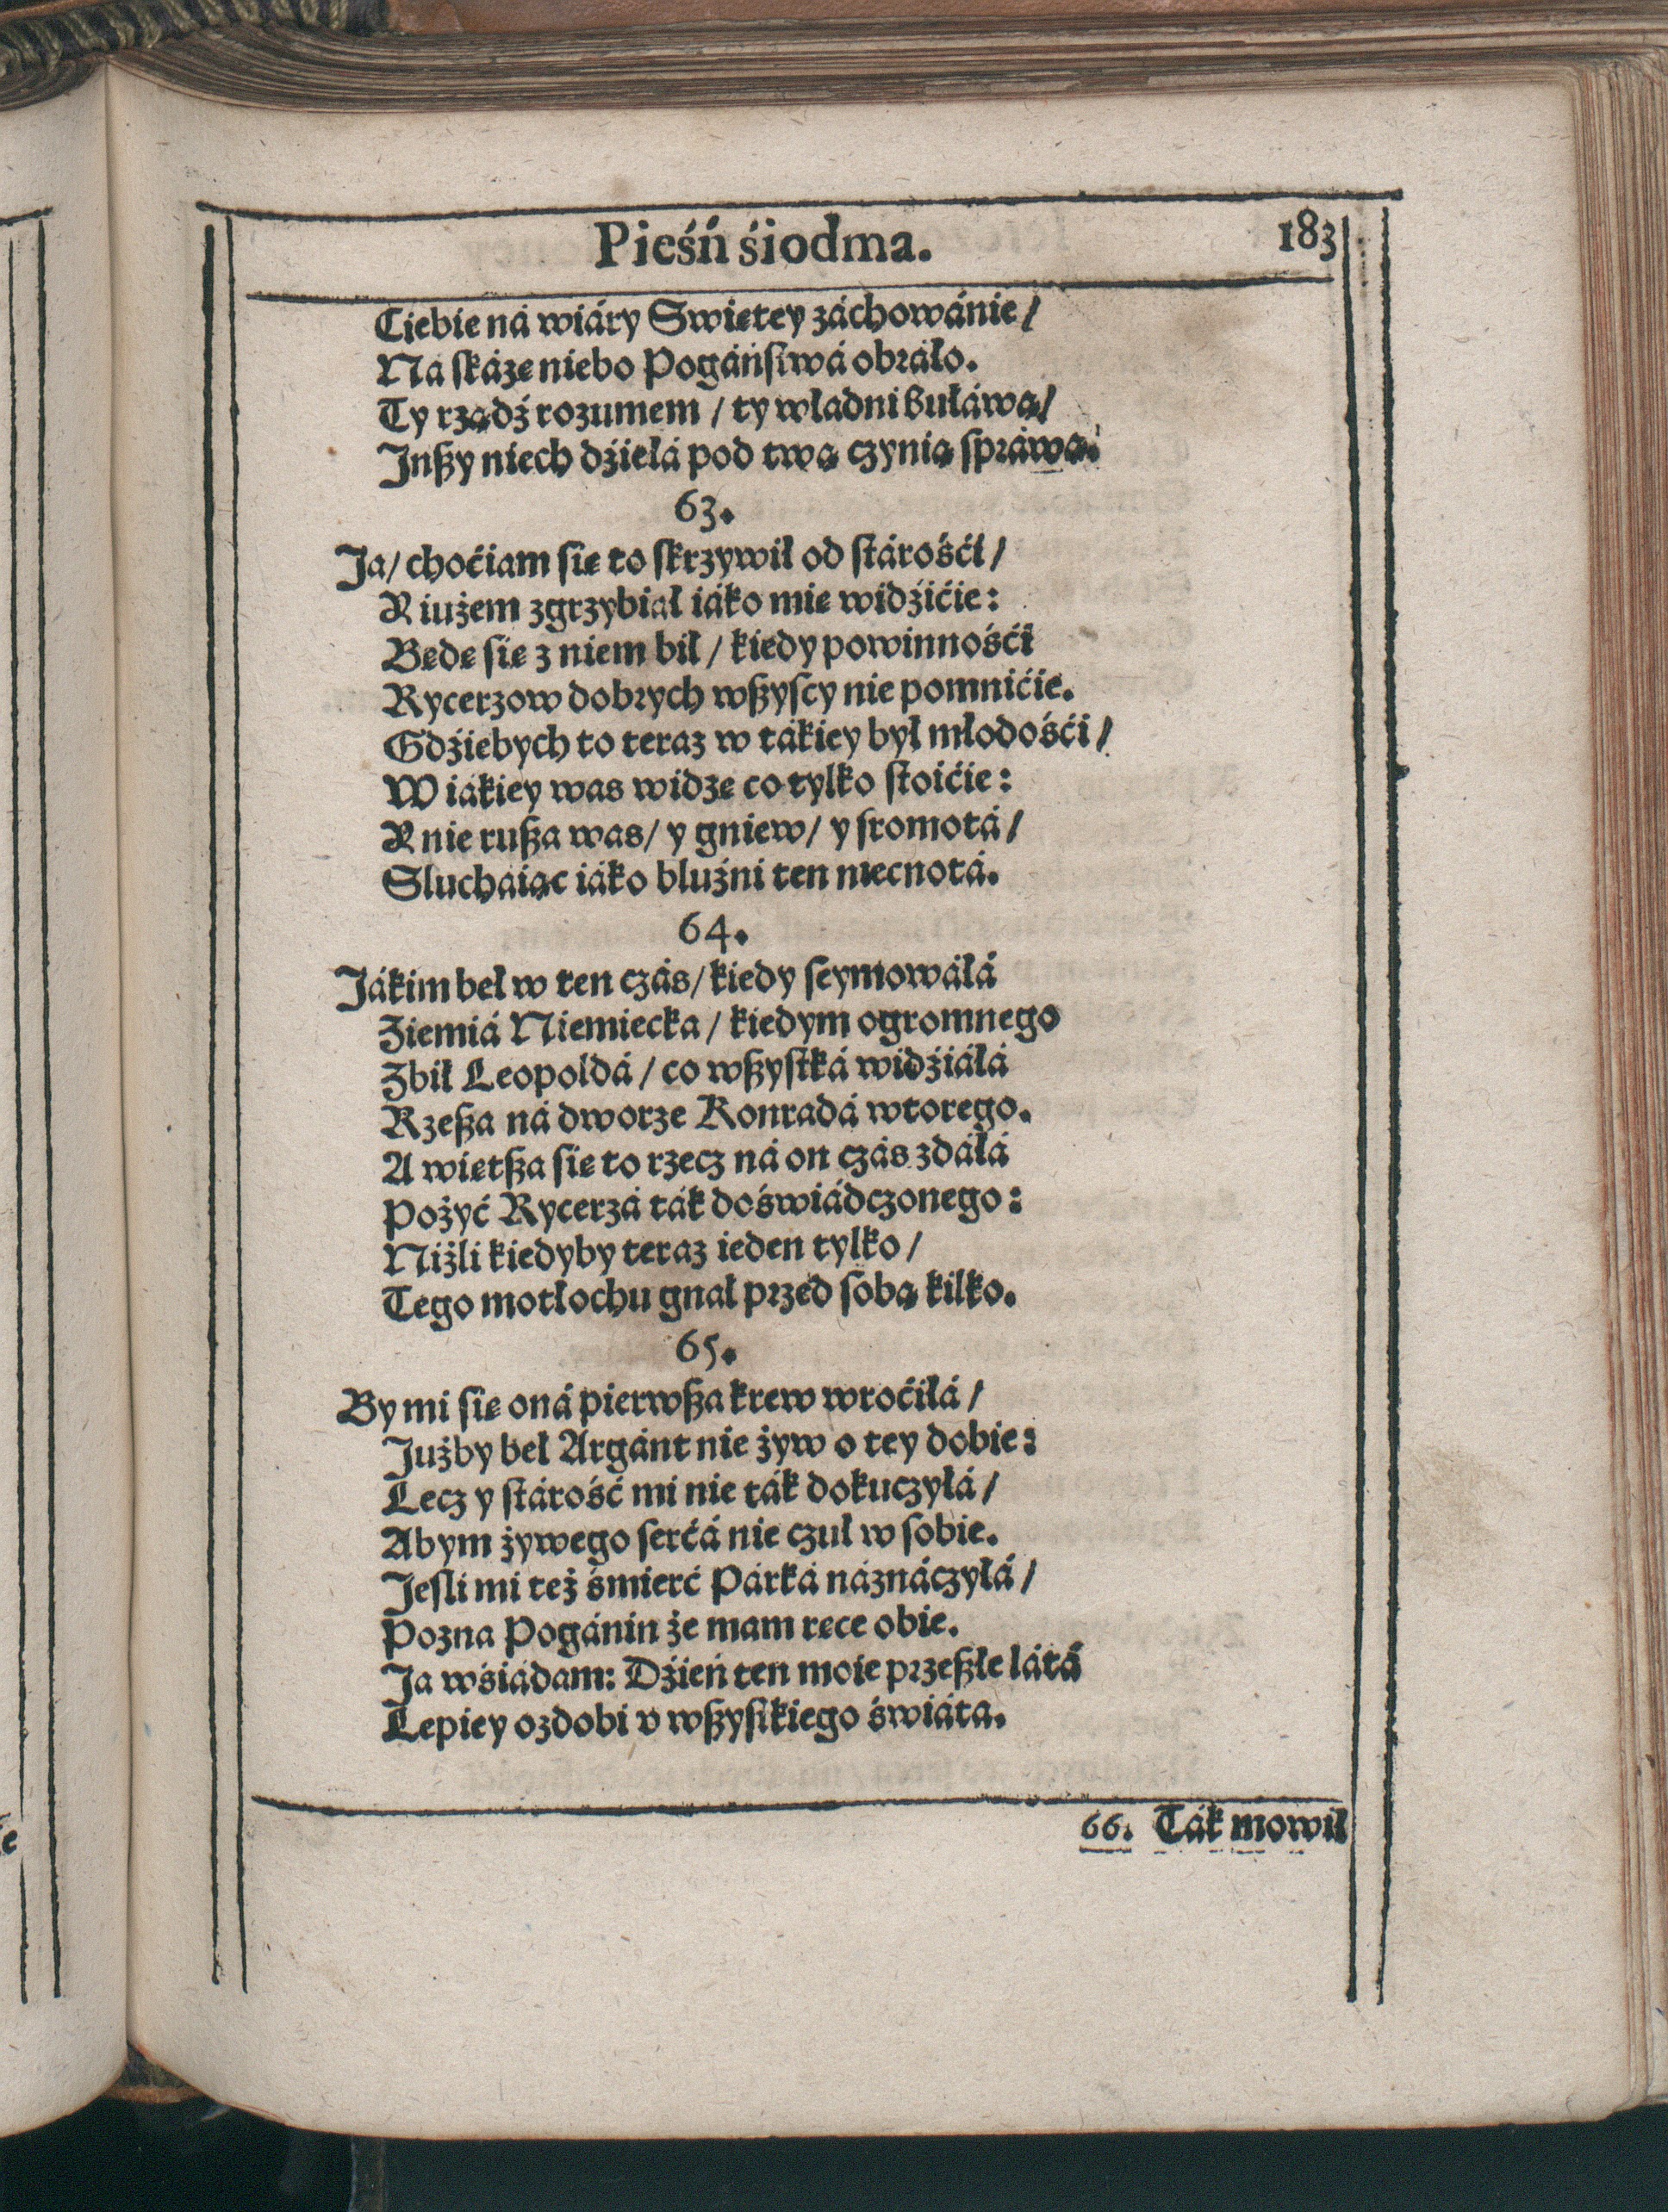 Pieśń śiodma.
183
Ciebie ná wiáry Swiętey záchowánie/
Ná skázę niebo Pogáństwá obráło.
Ty rządź rozumem / ty władni bułáwą/
Jnßy niech dźiełá pod twą czynią spráwą.
63.
Ja/ choćiam się to skrzywił od stárośći/
Y iużem zgrzybiał iáko mię widźićie:
Będę się z niem bił / kiedy powinnośći
Rycerzow dobrych wßyscy nie pomnićie.
Gdźiebych to teraz w tákiey był młodośći/
W iákiey was widzę co tylko stoićie:
Y nie rußa was/ y gniew/ y sromotá/
Sluchaiąc iáko bluźni ten niecnotá.
64.
Jákim beł w ten czás/ kiedy seymowáłá
Ziemiá Niemiecka / kiedym ogromnego
Zbił Leopoldá / co wßystká widźiáłá
Rzeßa ná dworze Konradá wtorego.
A więtßa się to rzecz ná on czás zdáłá
Pożyć Rycerzá ták doświádczonego:
Niżli kiedyby teraz ieden tylko /
Tego motłochu gnał przed sobą kilko.
65.
By mi się oná pierwßa krew wroćiłá /
Jużby beł Argánt nie żyw o tey dobie:
Lecz y stárość mi nie ták dokuczyłá /
Abym żywego serćá nie czuł w sobie.
Jesli mi też śmierć Párká náznáczyłá /
Pozna Pogánin że mam ręce obie.
Ja wśiádam: Dźień ten moie przeßłe látá
Lepiey ozdobi v wßystkiego świátá.
66. Ták mowił